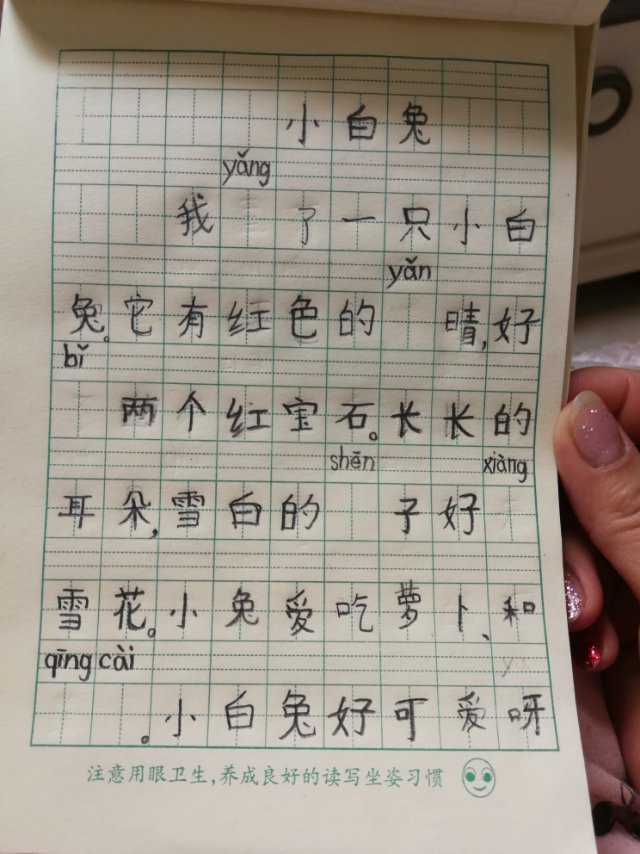 小白兔
yǎng
我 了一只小白
yǎn
兔。它有红色的 晴,好
bǐ
两个红宝石。长长的
shēn xiàng
耳朵,雪白的 子好
雪花。小兔爱吃萝卜、和
qīng cài
。小白兔好可爱呀
注意用眼卫生,养成良好的读写坐姿习惯